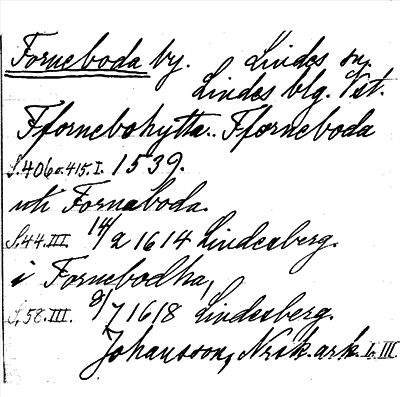 Forneboda by. Lindes sn.
Lindes blg. Vst.
Ffornebohytta. Fforneboda
S. 406 o. 415. I. 1539.
uti Fornaboda.
S. 44. III. 14/2 1614 Lindesberg.
i Fornebodha,
S. 58. III. 8/7 1618 Lindesberg.
Johansson, Nrsk. ark. I. III.